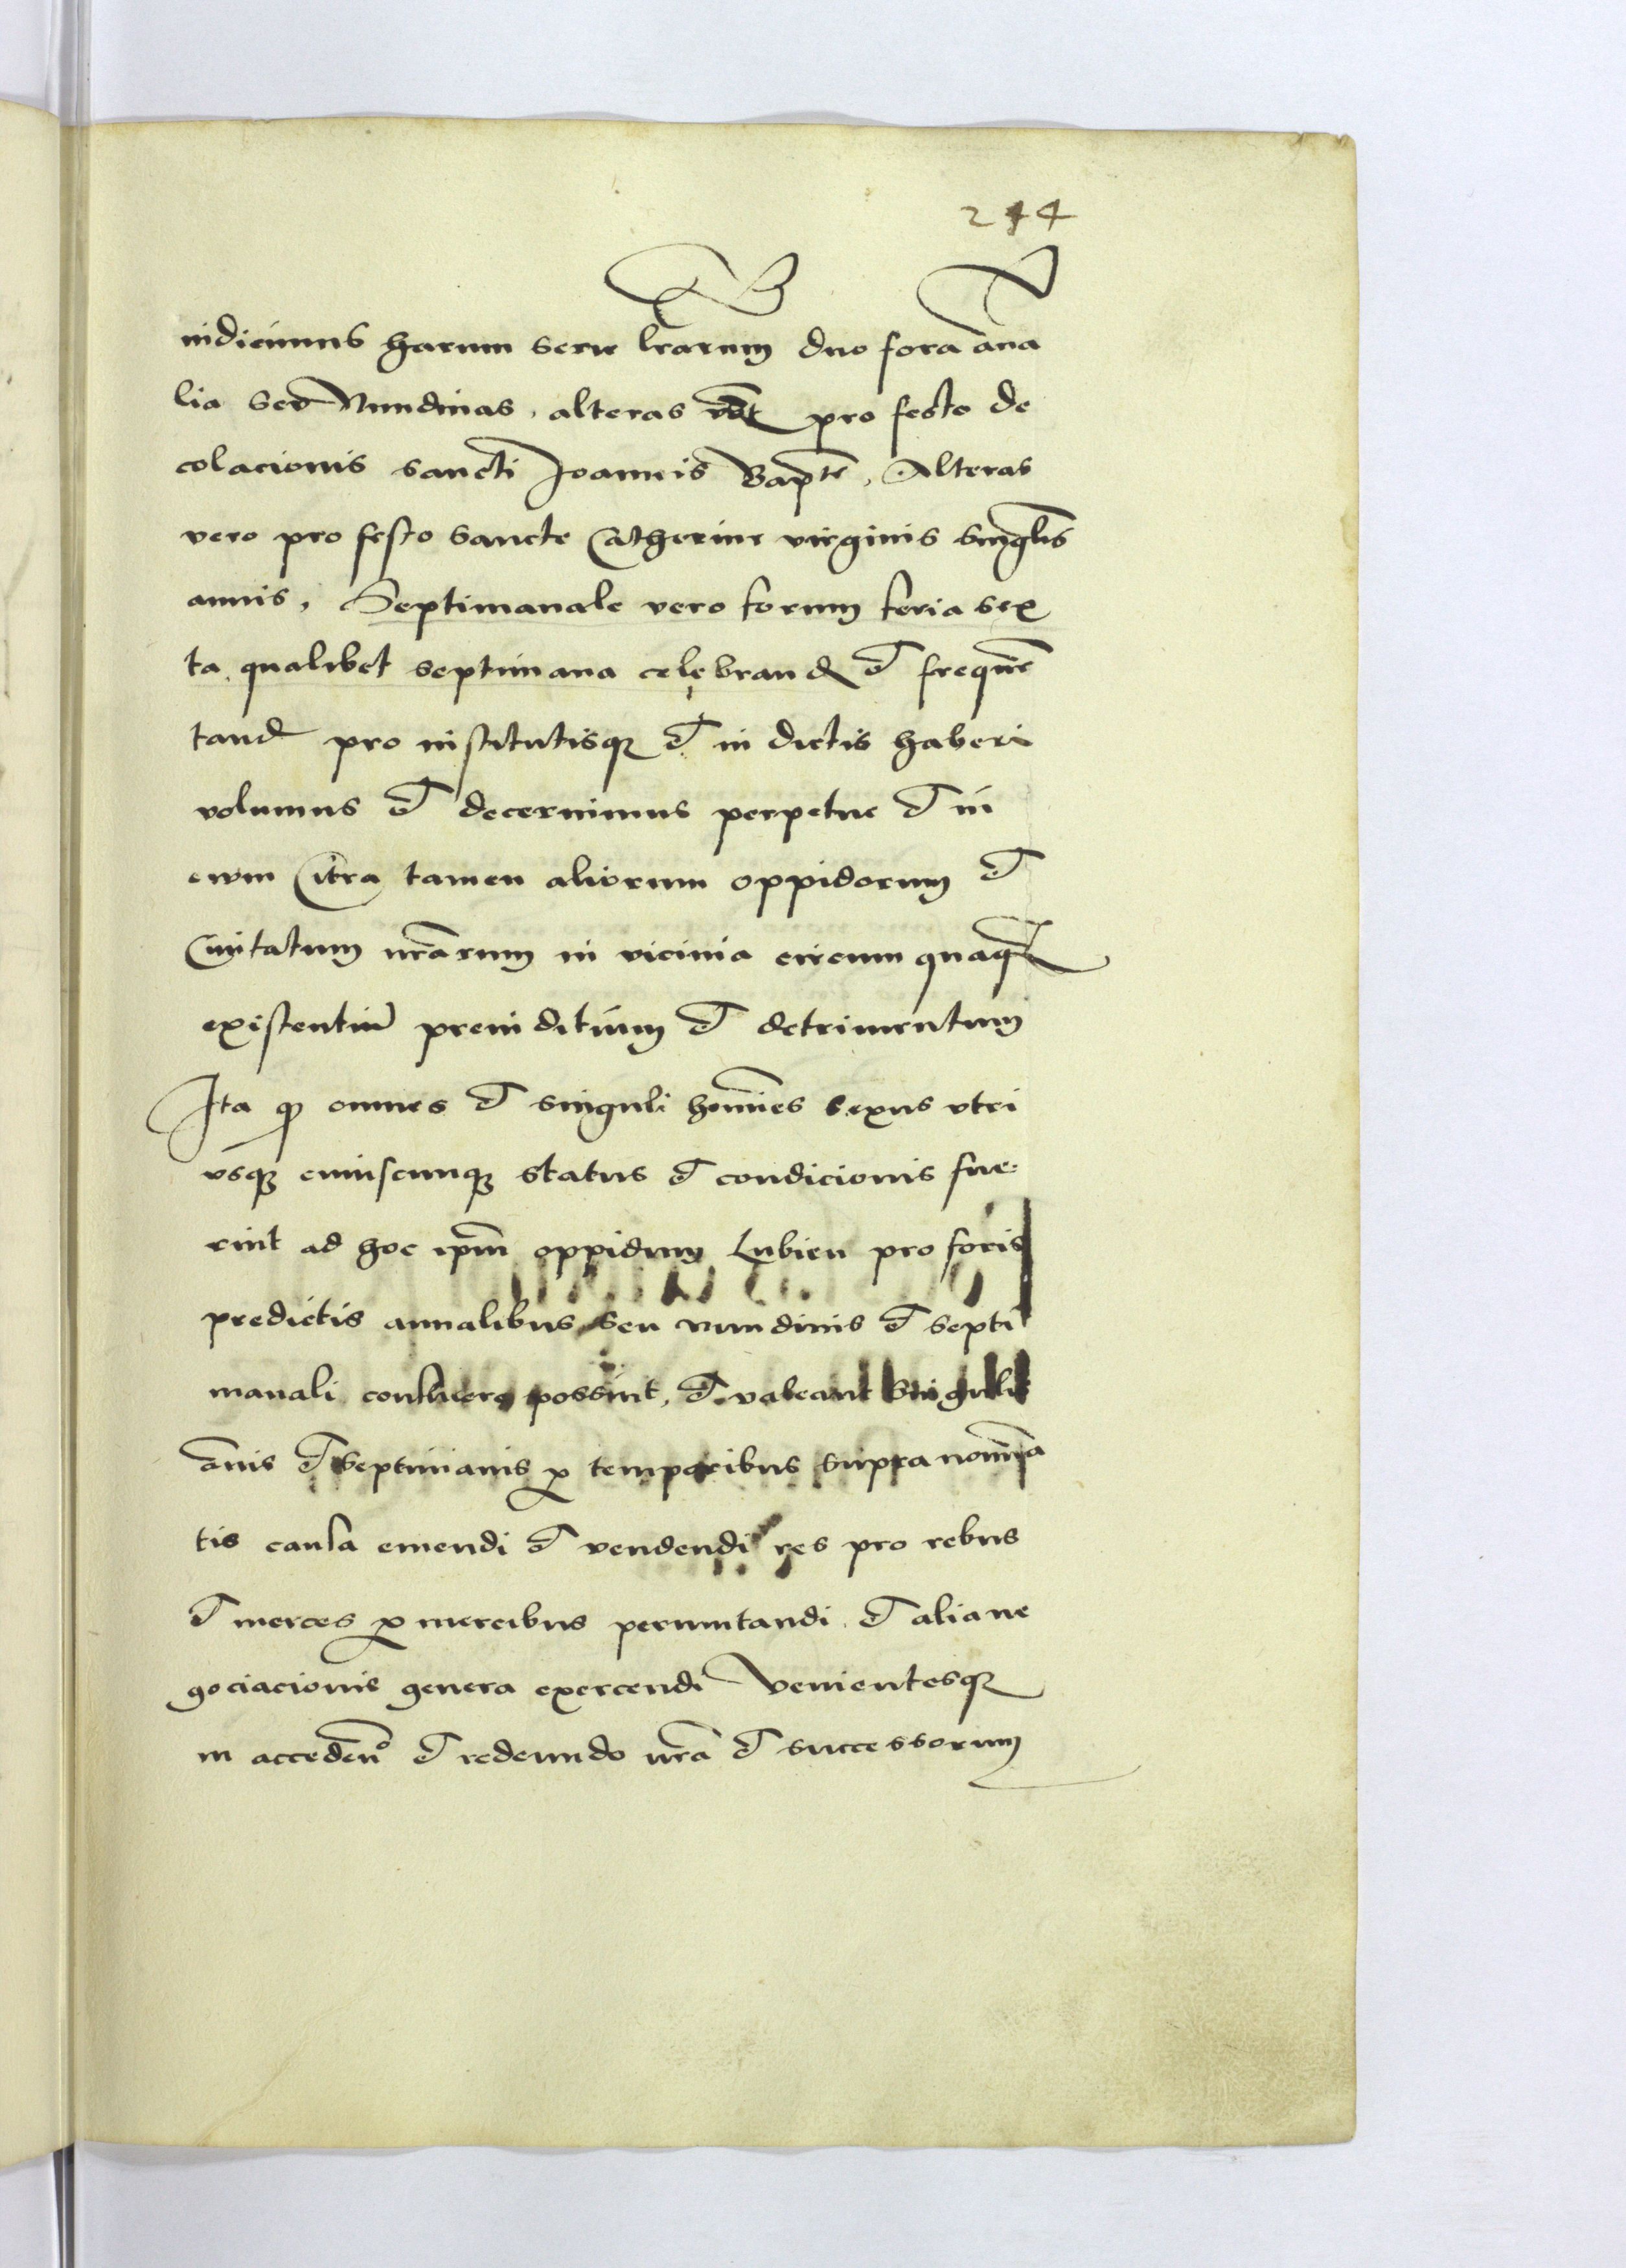 244
indicimus harum serie lrarum duo fora ana
lia seu Nundinas, alteras vdt pro festo de
colacionis sancti Joannis Bapte, Alteras
vero pro festo sancte Catherine virginis singlis
annis, Septimanale vero forum feria sex
ta qualibet septimana celebrand et frequen
tand pro institutisque et in dictis haberi
volumus et decernimus perpetue et in
ewm Citra tamen aliorum oppidorum et
Civitatum nrarum in vicinia circum quaque
existentium preiuditium et detrimentum
Ita quod omnes et singuli homines sexus vtri
vsque cuiuscunque status et condicionis fue
rint ad hoc ipm oppidum Lubien pro foris
predictis annalibus seu nundinis et septi
manali confluere possint, et valeant singulis
annis et septimanis pro temporibus supra nomina
tis causa emendi et vendendi res pro rebus
et merces pro mercibus permutandi et alia ne
gociacionis genera exercendi Venientesque
in accedendo et redeundo nra et successorum